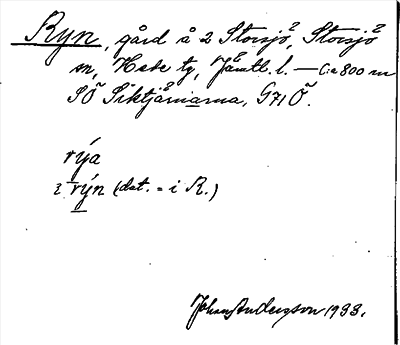 Ryn, gård å 2 Storsjö, Storsjö
sn, Hede tg, Jämtl. l. — C:a 800 m
SÖ Siktjärnarna, G71 Ö.
rýa
i rýn (dat. = i R.)
Johan Anderson 1933.